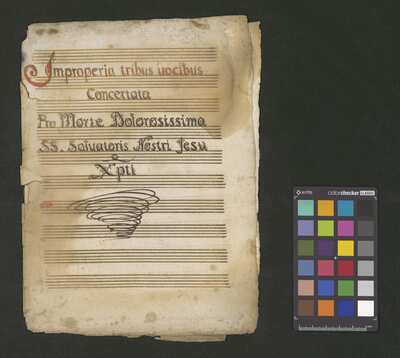 Improperia tribus vocibus
Concertata
Pro Morte Dolorosissima
SS. Salvatoris Nostri Jesu
Xpti
colorchecker